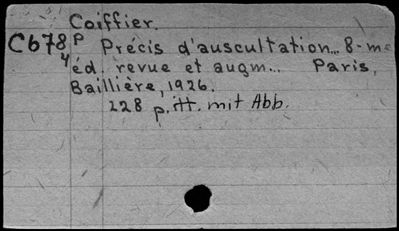 Coiffier.
C678 P Précis d'auscultation... 8-me
4 éd. revue et augm... Paris,
Baillière, 1926.
228 p. itt. mit Abb.